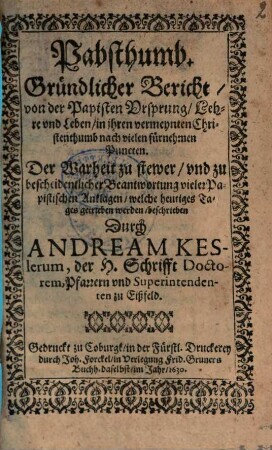 2
Pabsthumb.
Gründlicher Bericht /
von der Papisten Vrsprung / Leh-
re vnd Leben / in ihren vermeynten Chri-
stenthumb nach vielen fürnehmen
Puncten.
Der Warheit zu stewer / vnd zu
bescheidentlicher Beantwortung vieler Pa-
pistischen Aufflagen / welche heutiges Ta-
ges getrieben werden / beschrieben
Durch
ANDREAM KES-
lerum, der H. Schrifft Docto-
rem, Pfarrern vnd Superintenden-
ten zu Eißfeld.
Gedruckt zu Coburgk / in der Fürstl. Druckerey
durch Joh. Forckel / in Verlegung Frid. Gruners
Buchh. daselbst / im Jahr / 1630.